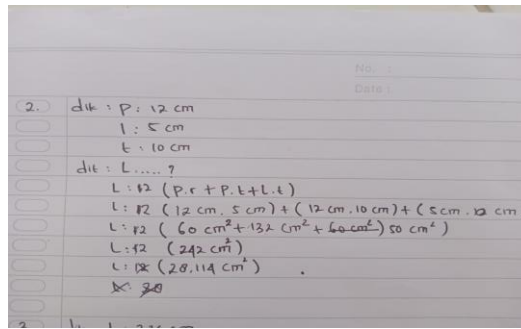 No. :
Date :
2. dik : P : 12 cm
l : 5 cm
t : 10 cm
dit : L ..... ?
L : 12 (p.r + p.t + L.t)
L : 12 (12 cm . 5 cm) + (12 cm . 10 cm) + (5 cm . 12 cm
L : 12 ( 60 cm² + 132 cm² + 60 cm²) 50 cm² )
L : 12 (242 cm²)
L : 12 (28.114 cm²)